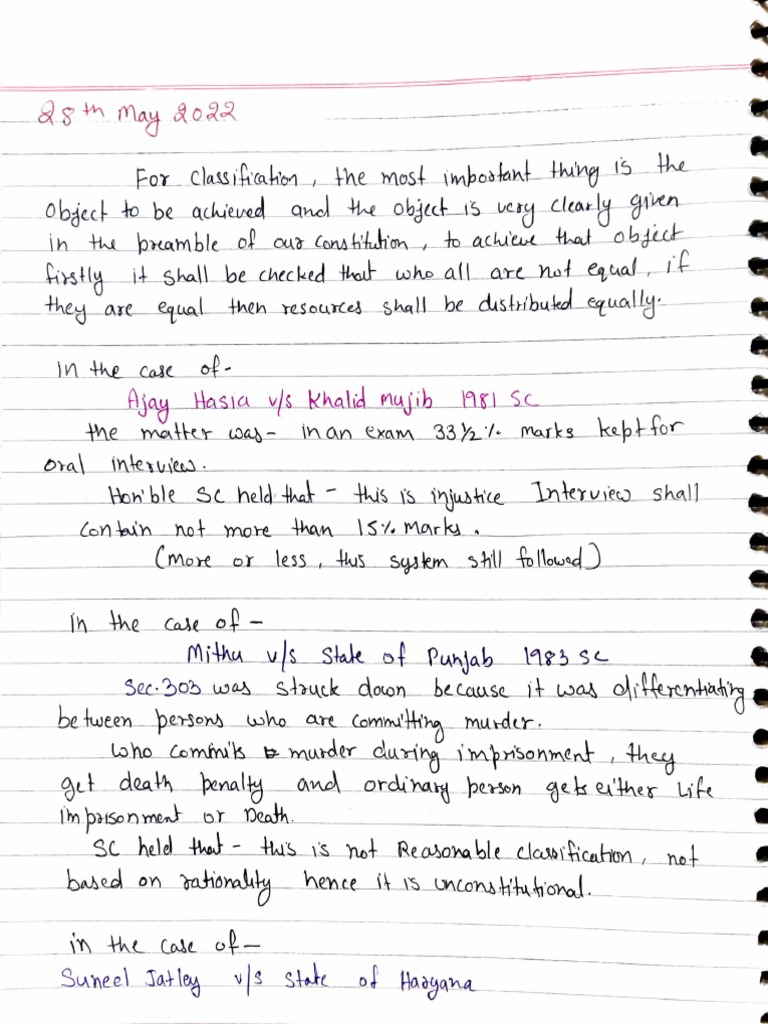 28th May 2022
For Classification, the most important thing is the
Object to be achieved and the object is very clearly given
in the preamble of our Constitution, to achieve that object
firstly it shall be checked that who all are not equal, if
they are equal then resources shall be distributed equally.
In the case of-
Ajay Hasia v/s Khalid Mujib 1981 SC
the matter was - in an exam 33 1/2 % marks kept for
oral interview.
Hon'ble SC held that - this is injustice Interview shall
Contain not more than 15% Marks.
(More or less, this system still followed)
In the case of -
Mithu v/s State of Punjab 1983 SC
Sec.303 was struck down because it was differentiating
between persons who are committing murder.
Who commits murder during imprisonment, they
get death penalty and ordinary person gets either Life
imprisonment or Death.
SC held that - this is not Reasonable classification, not
based on rationality hence it is unconstitutional.
in the case of -
Suneel Jatley v/s State of Haryana